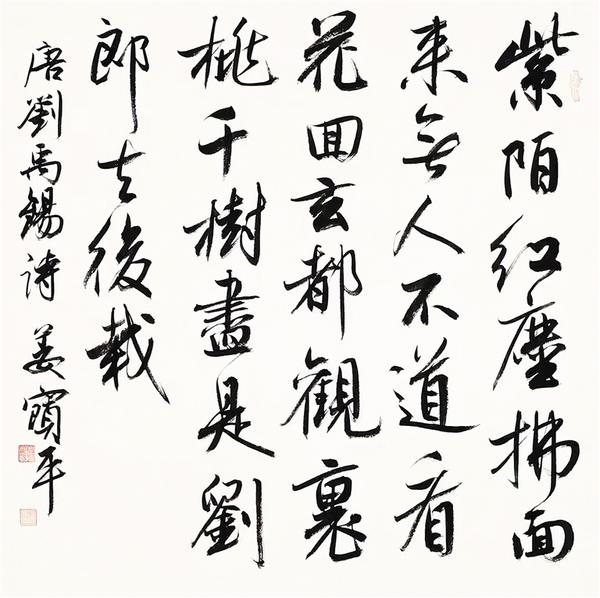 紫陌红塵拂面
来無人不道看
花回玄都觀裏
桃千樹盡是劉
郎去後栽
唐劉禹錫詩 姜寶平